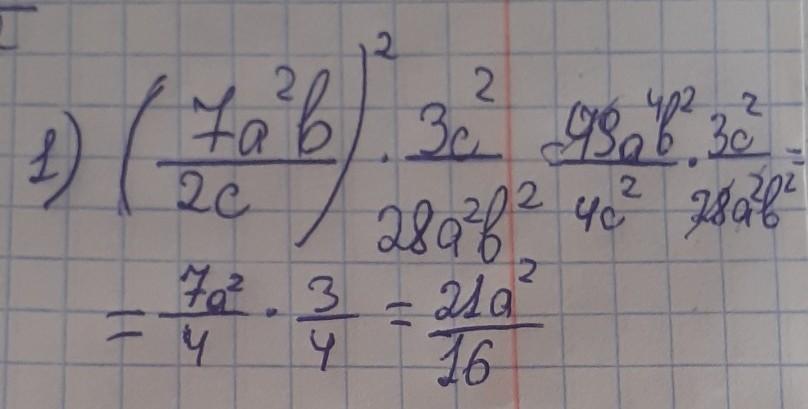 1) (7a²b/2c)² · 3c²/28a²b² = 49a⁴b²/4c² · 3c²/28a²b² =
= 7a²/4 · 3/4 = 21a²/16